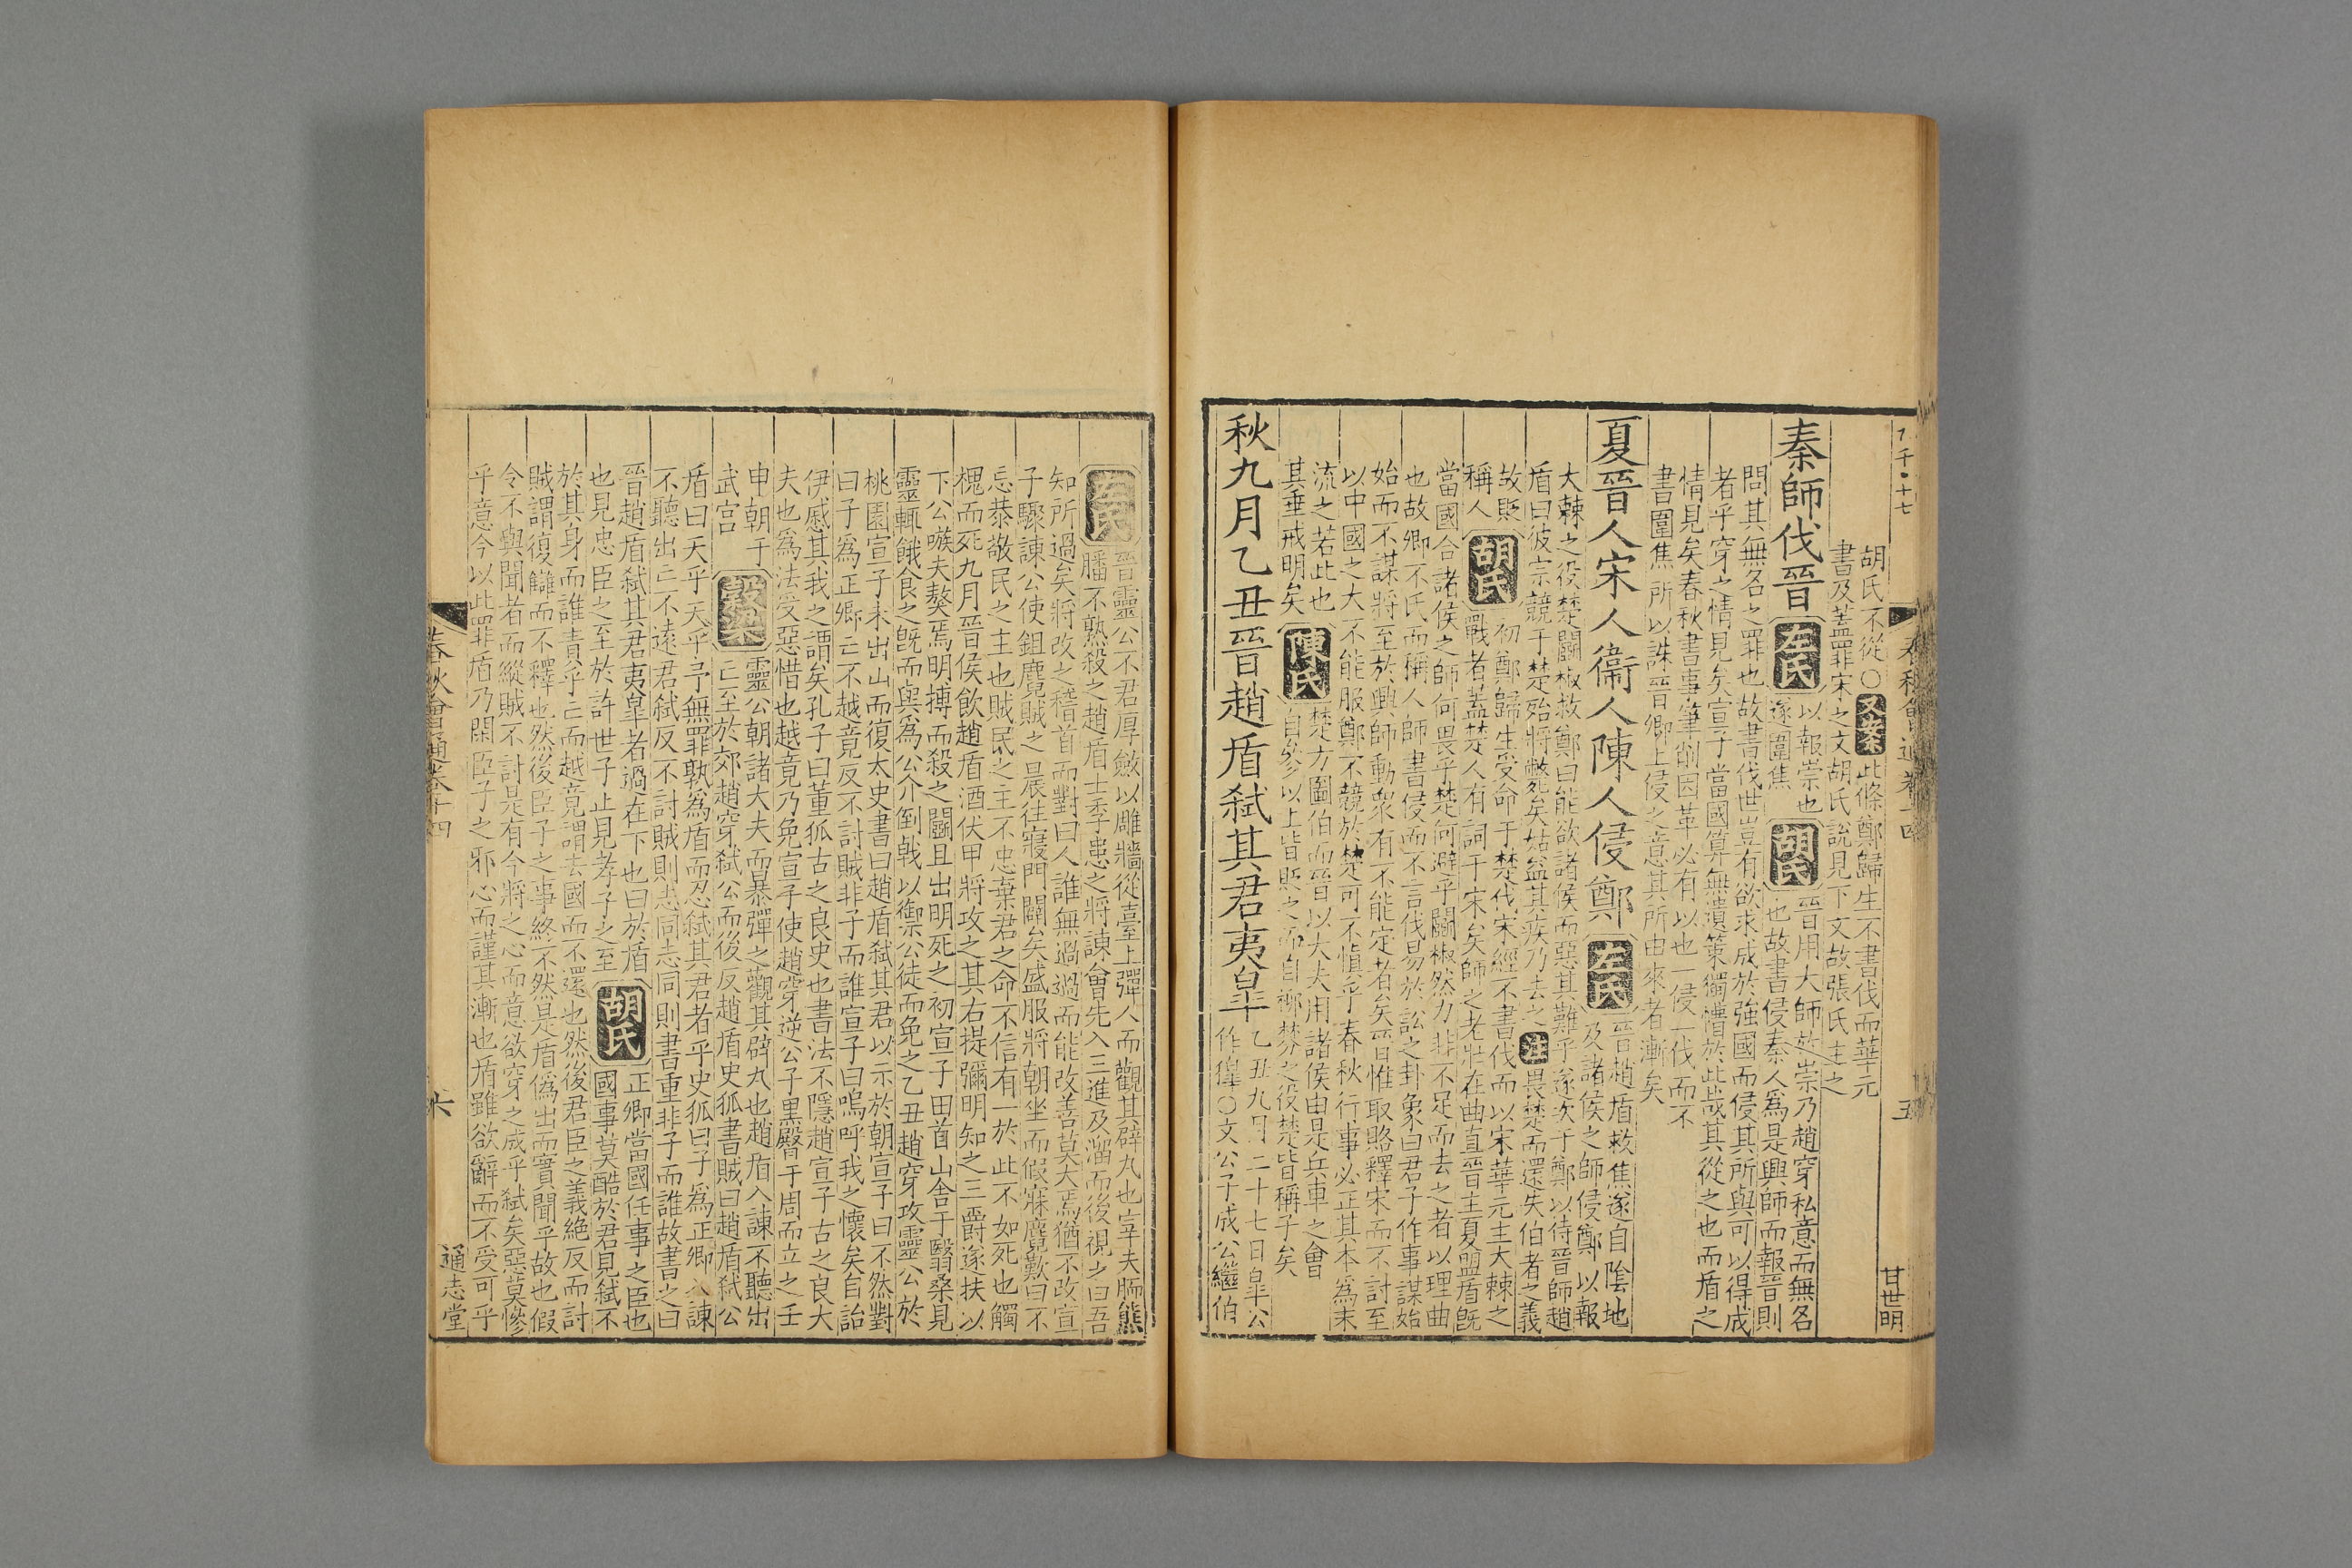 胡氏不從○又案此條鄭歸生不書伐而華元
書及蓋罪宋之文胡氏說見下文故張氏主之
秦師伐晉左氏以報崇也
遂圍焦胡氏晉用大師於崇乃趙穿私意而無名
也故書侵秦人爲是興師而報晉則
問其無名之罪也故書伐世豈有欲求成於強國而侵其所與可以得成
者乎穿之情見矣宣子當國算無遺策獨懵於此哉其從之也而盾之
情見矣春秋書事筆削因革必有以也一侵一伐而不
書圍焦所以誅晉卿上侵之意其所由來者漸矣
夏晉人宋人衞人陳人侵鄭左氏晉趙盾救焦遂自陰地
及諸侯之師侵鄭以報
大棘之役楚鬬椒救鄭曰能欲諸侯而惡其難乎遂次于鄭以待晉師趙
盾曰彼宗競于楚殆將斃矣姑益其疾乃去之注畏楚而還失伯者之義
故貶
稱人初鄭歸生受命于楚伐宋經不書伐而以宋華元主大棘之
胡氏戰者蓋楚人有詞于宋矣師之老壯在曲直晉主夏盟盾旣
當國合諸侯之師何畏乎楚何避乎鬬椒然力非不足而去之者以理曲
也故卿不氏而稱人師書侵而不言伐易於訟之卦象曰君子作事謀始
始而不謀將至於興師動衆有不能定者矣晉惟取賂釋宋而不討至
以中國之大不能服鄭不競於楚可不愼乎春秋行事必正其本爲末
流之若此也
其垂戒明矣陳氏楚方圖伯而晉以大夫用諸侯由是兵車之會
自參以上皆貶之而自柳棼之役楚皆稱子矣
秋九月乙丑晉趙盾弑其君夷皐乙丑九月二十七日皐公
作獋○文公子成公繼伯
春秋會通卷十四
五
甘世明
左氏晉靈公不君厚斂以雕牆從臺上彈人而觀其辟丸也宰夫胹熊
膰不熟殺之趙盾士季患之將諫會先入三進及溜而後視之曰吾
知所過矣將改之稽首而對曰人誰無過過而能改善莫大焉猶不改宣
子驟諫公使鉏麑賊之晨往寢門闢矣盛服將朝坐而假寐麑歎曰不
忘恭敬民之主也賊民之主不忠棄君之命不信有一於此不如死也觸
槐而死九月晉侯飲趙盾酒伏甲將攻之其右提彌明知之三爵遂扶以
下公嗾夫獒焉明搏而殺之鬬且出明死之初宣子田首山舍于翳桑見
靈輒餓食之旣而與爲公介倒戟以禦公徒而免之乙丑趙穿攻靈公於
桃園宣子未出山而復太史書曰趙盾弑其君以示於朝宣子曰不然對
曰子爲正卿亡不越竟反不討賊非子而誰宣子曰嗚呼我之懷矣自詒
伊慼其我之謂矣孔子曰董狐古之良史也書法不隱趙宣子古之良大
夫也爲法受惡惜也越竟乃免宣子使趙穿逆公子黑臀于周而立之壬
申朝于
武宮榖梁靈公朝諸大夫而暴彈之觀其辟丸也趙盾入諫不聽出
亡至於郊趙穿弑公而後反趙盾史狐書賊曰趙盾弑公
盾曰天乎天乎予無罪孰爲盾而忍弑其君者乎史狐曰子爲正卿入諫
不聽出亡不遠君弑反不討賊則志同志同則書重非子而誰故書之曰
晉趙盾弑其君夷皐者過在下也曰於盾
也見忠臣之至於許世子止見孝子之至胡氏正卿當國任事之臣也
國事莫酷於君見弑不
於其身而誰責乎亡而越竟謂去國而不還也然後君臣之義絶反而討
賊謂復讎而不釋也然後臣子之事終不然是盾僞出而實聞乎故也假
令不與聞者而縱賊不討是有今將之心而意欲穿之成乎弑矣惡莫慘
乎意今以此罪盾乃閑臣子之邪心而謹其漸也盾雖欲辭而不受可乎
春秋會通卷十四
六
通志堂